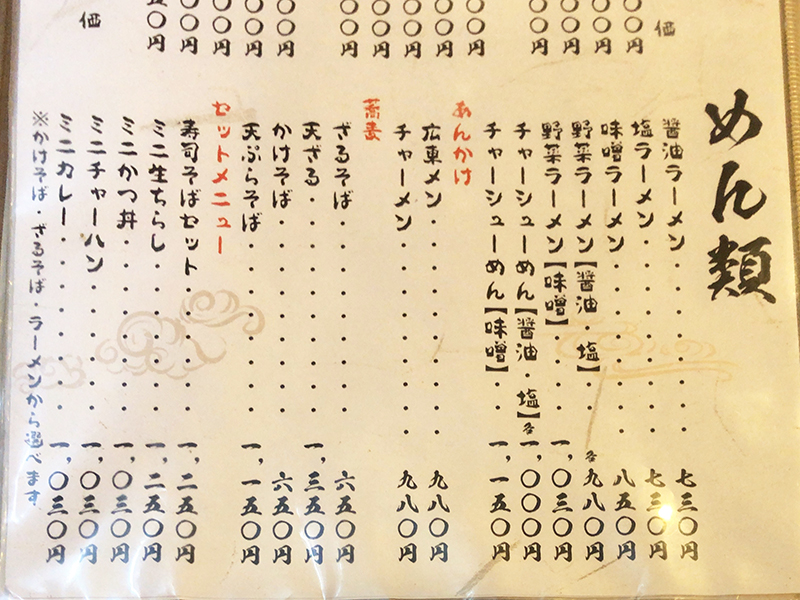 価
〇〇円
〇〇円
〇〇円
〇〇円
〇〇円
〇〇円
〇〇円
〇〇円
〇〇円
〇〇円
〇〇円
〇〇円
〇〇円
五〇円
価
めん類
醤油ラーメン・・・・・・七三〇円
塩ラーメン・・・・・・・七三〇円
味噌ラーメン・・・・・・八五〇円
野菜ラーメン【醤油・塩】・各九八〇円
野菜ラーメン【味噌】・・・一、〇三〇円
チャーシューめん【醤油・塩】各一、〇〇〇円
チャーシューめん【味噌】・・一、一五〇円
あんかけ
広東メン・・・・・・・・九八〇円
チャーメン・・・・・・・九八〇円
蕎麦
ざるそば・・・・・・・・六五〇円
天ざる・・・・・・・・・一、三五〇円
かけそば・・・・・・・・六五〇円
天ぷらそば・・・・・・・一、一五〇円
セットメニュー
寿司そばセット・・・・・・一、二五〇円
ミニ生ちらし・・・・・・・一、二五〇円
ミニかつ丼・・・・・・・・一、〇三〇円
ミニチャーハン・・・・・・一、〇三〇円
ミニカレー・・・・・・・・一、〇三〇円
※かけそば・ざるそば・ラーメンから選べます